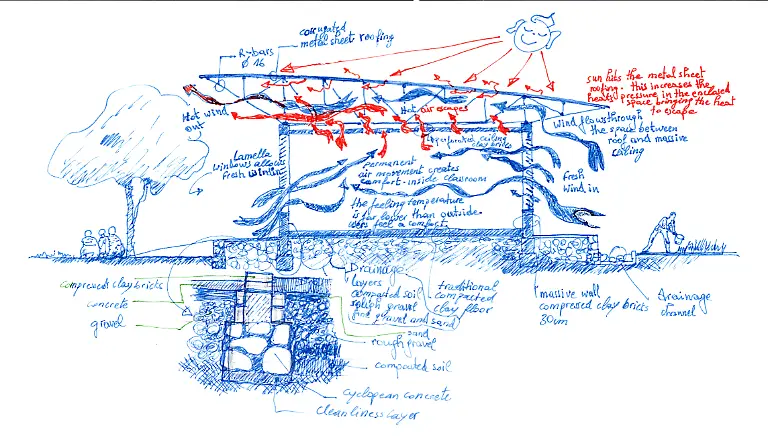 corrugated
metal sheet roofing
R-bars
Ø 16
sun hits the metal sheet
roofing. this increases the
heat/pressure in the enclosed
space bringing the heat
to escape
Hot wind
out
Hot air escapes
wind flows through
the space between
roof and massive
ceiling
perforated ceiling
clay bricks
Lamella
windows allows
fresh wind in
permanent
air movement creates
comfort inside classroom
fresh
wind in
the feeling temperature
is far lower than outside
comfort.
compressed clay bricks
concrete
gravel
Drainage
layers
compacted soil
rough gravel
fine gravel and sand
traditional
compacted
clay floor
massive wall
compressed clay bricks
30cm
drainage
channel
sand
rough gravel
compacted soil
cyclopean concrete
cleanliness layer